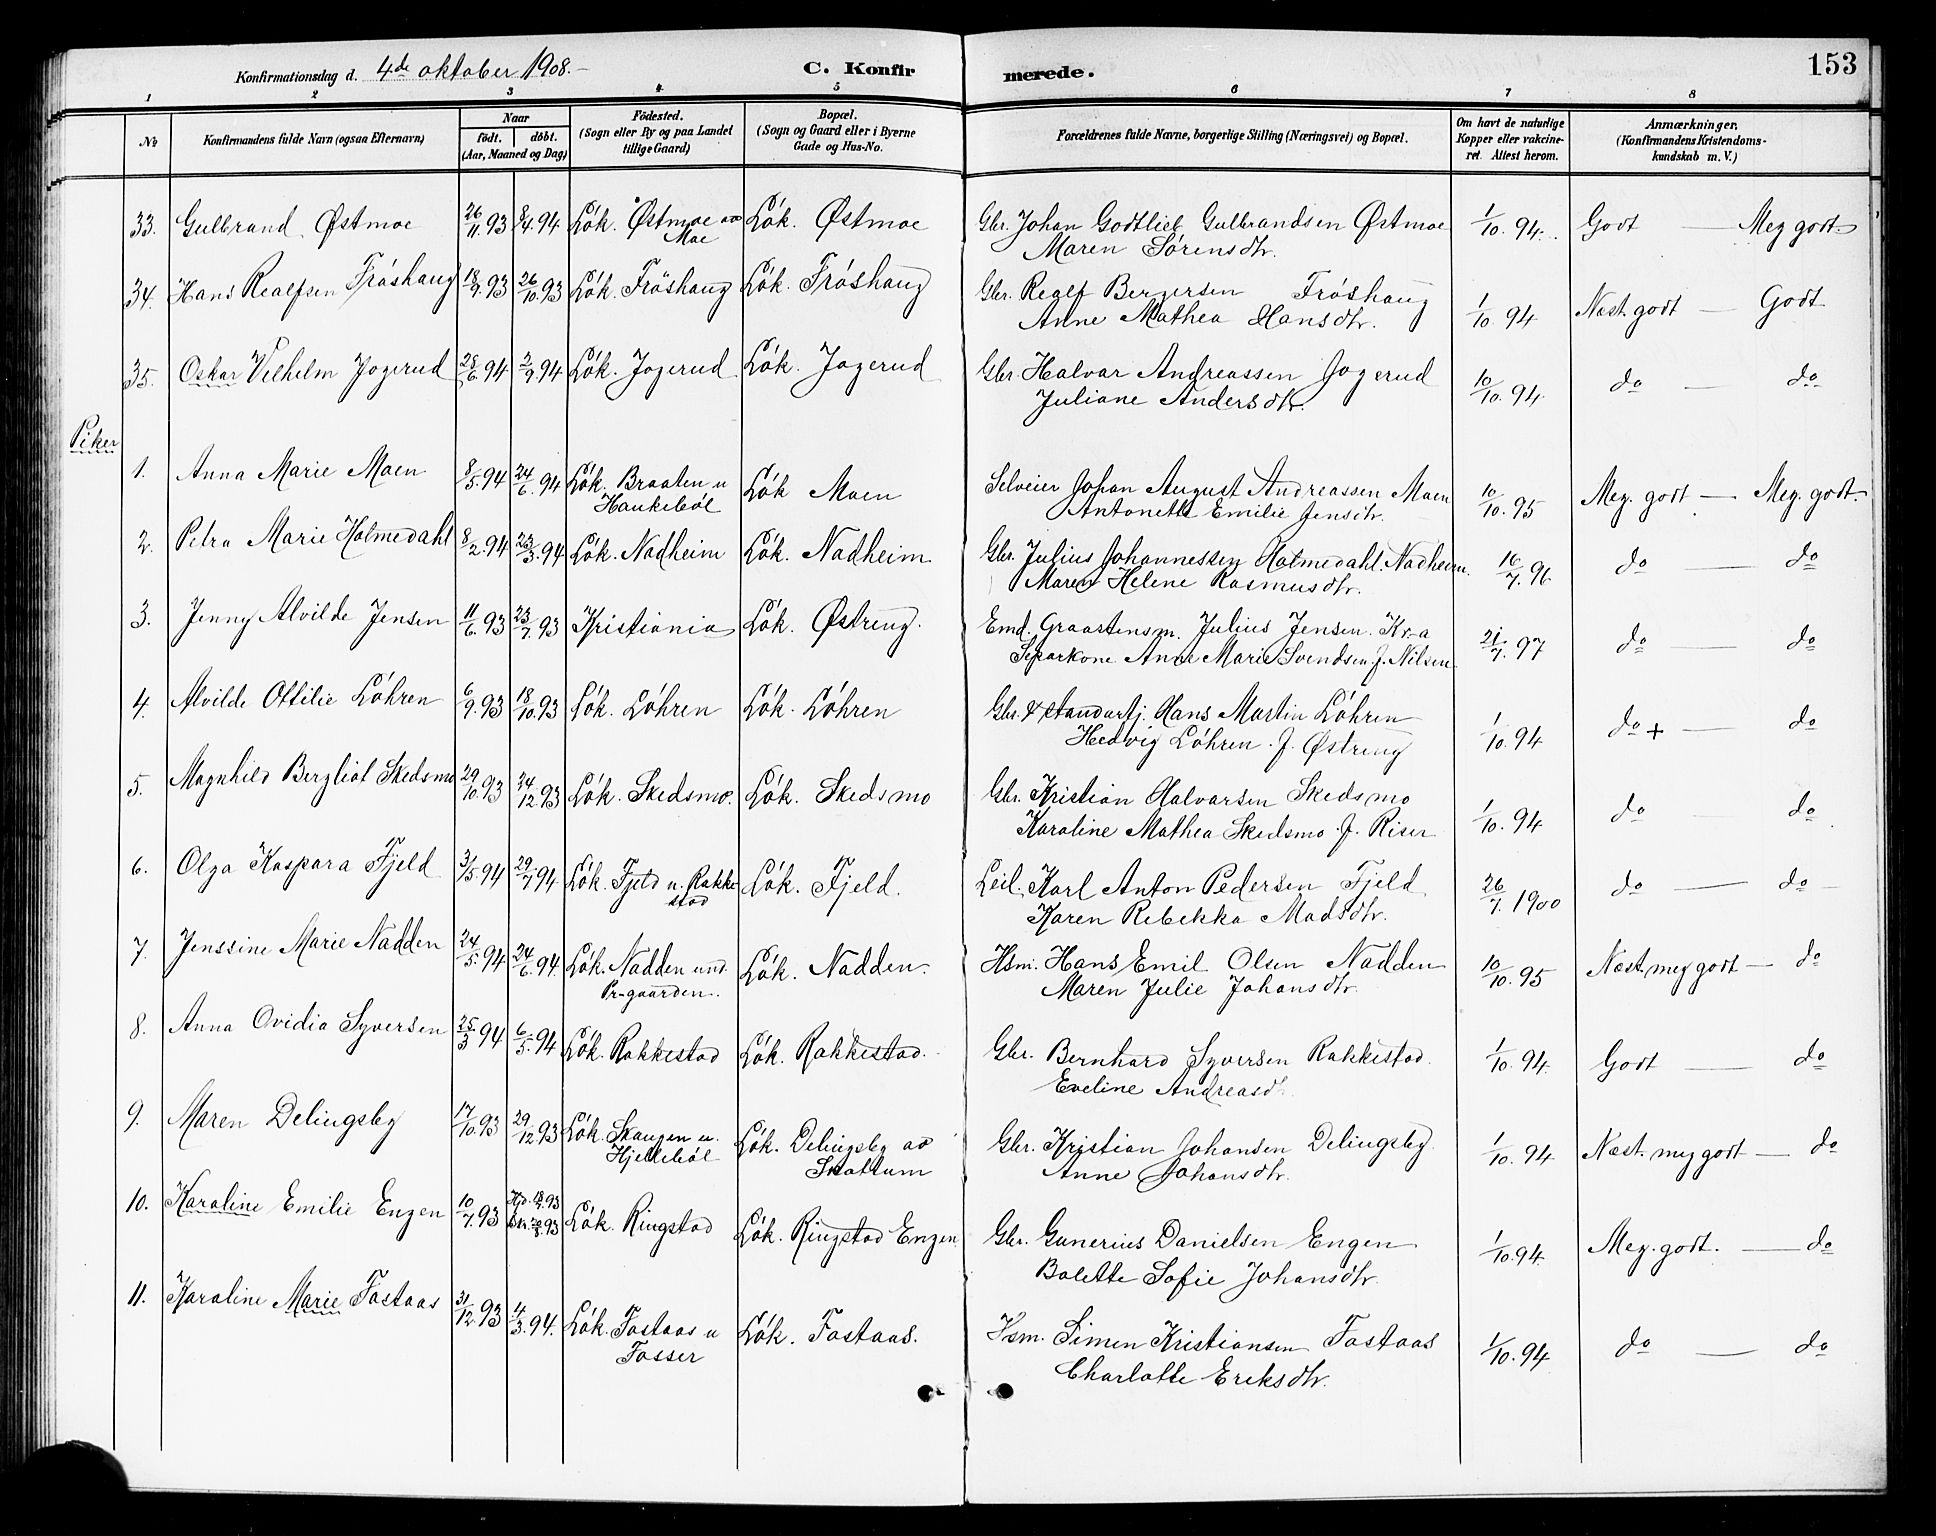 Konfirmationsdag d. 4de oktober 1908.-
C. Konfir merede.
153
1 2 3 4 5 6 7 8
No
Konfirmandens fulde Navn (ogsaa Efternavn)
Naar
født. døbt.
(Aar, Maaned og Dag)
Fødested.
(Sogn eller By og paa Landet
tillige Gaard)
Bopæl.
(Sogn og Gaard eller i Byerne
Gade og Hus-No.
Forældrenes fulde Navne, borgerlige Stilling (Næringsvei) og Bopæl.
Om havt de naturlige
Kopper eller vakcine-
ret. Attest herom.
Anmærkninger.
(Konfirmandens Kristendoms-
kundskab m. V.)
33. Gulbrand Østmoe 26/11.93 8/4.94 Løk. Østmoe av Løk. Østmoe Gbr. Johan Godtlieb Gulbrandsen Østmoe 1/10.94. Godt — Meg godt
Moe Maren Sørensdtr.
34. Hans Realfsen Frøshaug 18/9.93 26/10.93 Løk. Frøshaug Løk. Frøshaug Gbr. Realf Bergersen Frøshaug 1/10.94 Næst godt — Godt
Anne Mathea Hansdtr.
35. Oskar Vilhelm Jogerud 28/6.94 2/9.94 Løk. Jogerud Løk. Jogerud Gbr. Halvar Andreassen Jogerud 10/10.94 do — do
Juliane Andersdtr.
Piker
1. Anna Marie Moen 8/5.94 24/6.94 Løk. Braaten u Løk Moen Selveier Johan August Andreassen Moen 10/10.95 Meg. godt — Meg. godt
Haukebøl Antonette Emilie Jensdtr.
2. Petra Marie Holmedahl 8/2.94 23/3.94 Løk. Nadheim Løk. Nadheim Gbr. Julius Johannessen Holmedahl. Nadheim. 16/7.96 do — do
Maren Helene Rasmusdtr.
3. Jenny Alvilde Jensen 11/6.93 23/7.93 Kristiania Løk. Østreng. Emd. Graastensm. Julius Jensen. Kr-a 21/7.97 do — do
Separkone Anne Marie Svendsen f. Nilsen
4. Alvilde Ottilie Løhren 6/9.93 18/10.93 Løk. Løhren Løk. Løhren Gbr. & standartj. Hans Martin Løhren 1/10.94 do + — do
Hedvig Løhren. f. Østreng
5. Magnhild Bergliot Skedsmo 29/10.93 24/12.93 Løk. Skedsmo. Løk. Skedsmo Gbr. Kristian Halvarsen Skedsmo 1/10.94 do do
Karoline Mathea Skedsmo. f. Riser
6. Olga Kaspara Fjeld 3/5.94 29/7.94 Løk. Fjeld u. Rakke Løk. Fjeld. Leil. Karl Anton Pedersen Fjeld 26/7.1900 do — do
stad Karen Rebekka Madsdtr.
7. Jenssine Marie Nadden 24/5.94 24/6.94. Løk. Nadden und. Løk. Nadden. Hsm. Hans Emil Olsen Nadden 10/10.95 Næst meg godt — do
Pr-gaarden. Maren Julie Johansdtr.
8. Anna Ovidia Syversen 25/3 94 6/5.94 Løk. Rakkestad Løk. Rakkestad. Gbr. Bernhard Syversen Rakkestad. 1/10.94. Godt — do
Eveline Andreasd.
9. Maren Delingsby 17/10.93 29/12.93 Løk. Skaugen u. Løk. Delingsby av Gbr. Kristian Johansen Delingsby. 1/10.94 Næst. meg godt — do
Hjellebøl Skallum Anne Johansdtr.
10. Karoline Emilie Engen 10/7.93 Løk. Ringstad Løk. Ringstad Engen Gbr. Gunerius Danielsen Engen 1/10.94. Meg. godt. — do
Bolette Sofie Johansdtr.
11. Karoline Marie Fostaas 31/12.93 4/3.94. Løk. Fostaas u Løk. Fostaas. Hsm. Simen Kristiansen Fostaas 1/10.94 do — do
Fosser Charlotte Eriksdtr.